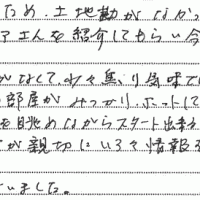 ため、土地勘がなかっ
アさんを紹介してもらい今
がなくて、少々焦り気味で
部屋がみつかり、ホットして
を眺めながらスタート出来
が親切にいろいろ情報を
いました。